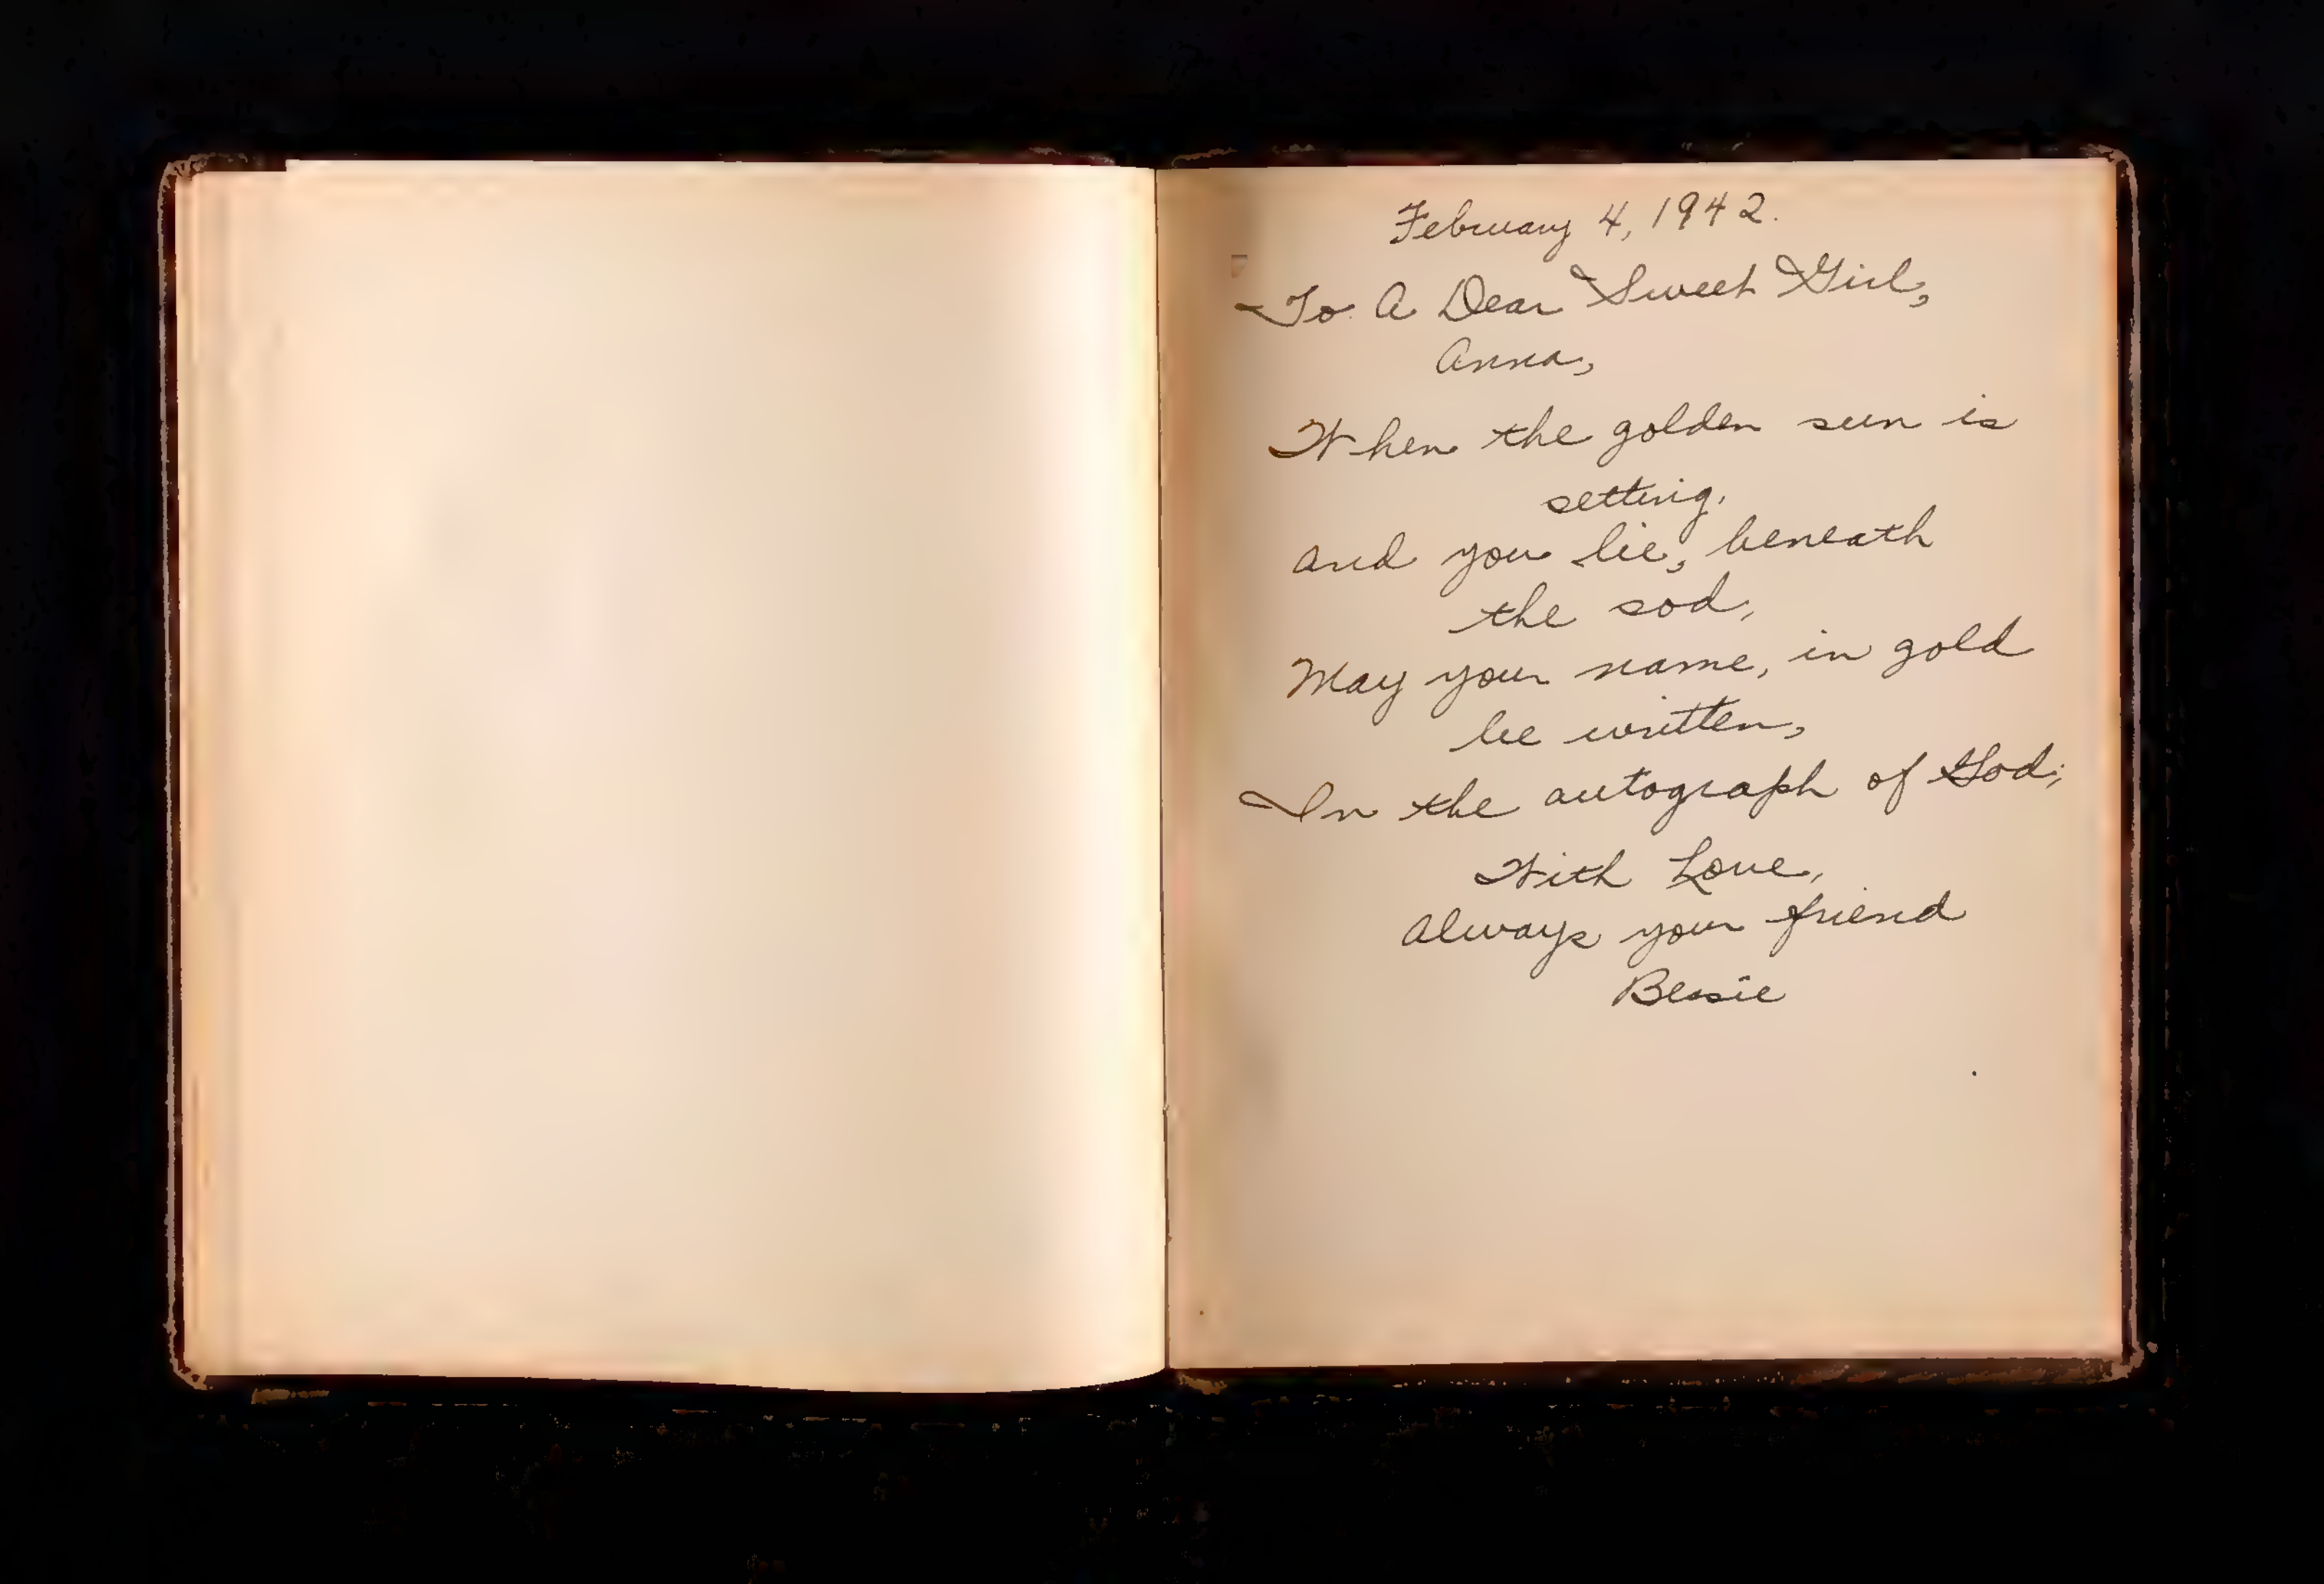 February 4, 1942.
To A Dear Sweet Girl,
Anna,
When the golden sun is
setting,
and you lie, beneath
the sod,
May your name, in gold
be written,
In the autograph of God;
With Love,
Always your friend
Bessie